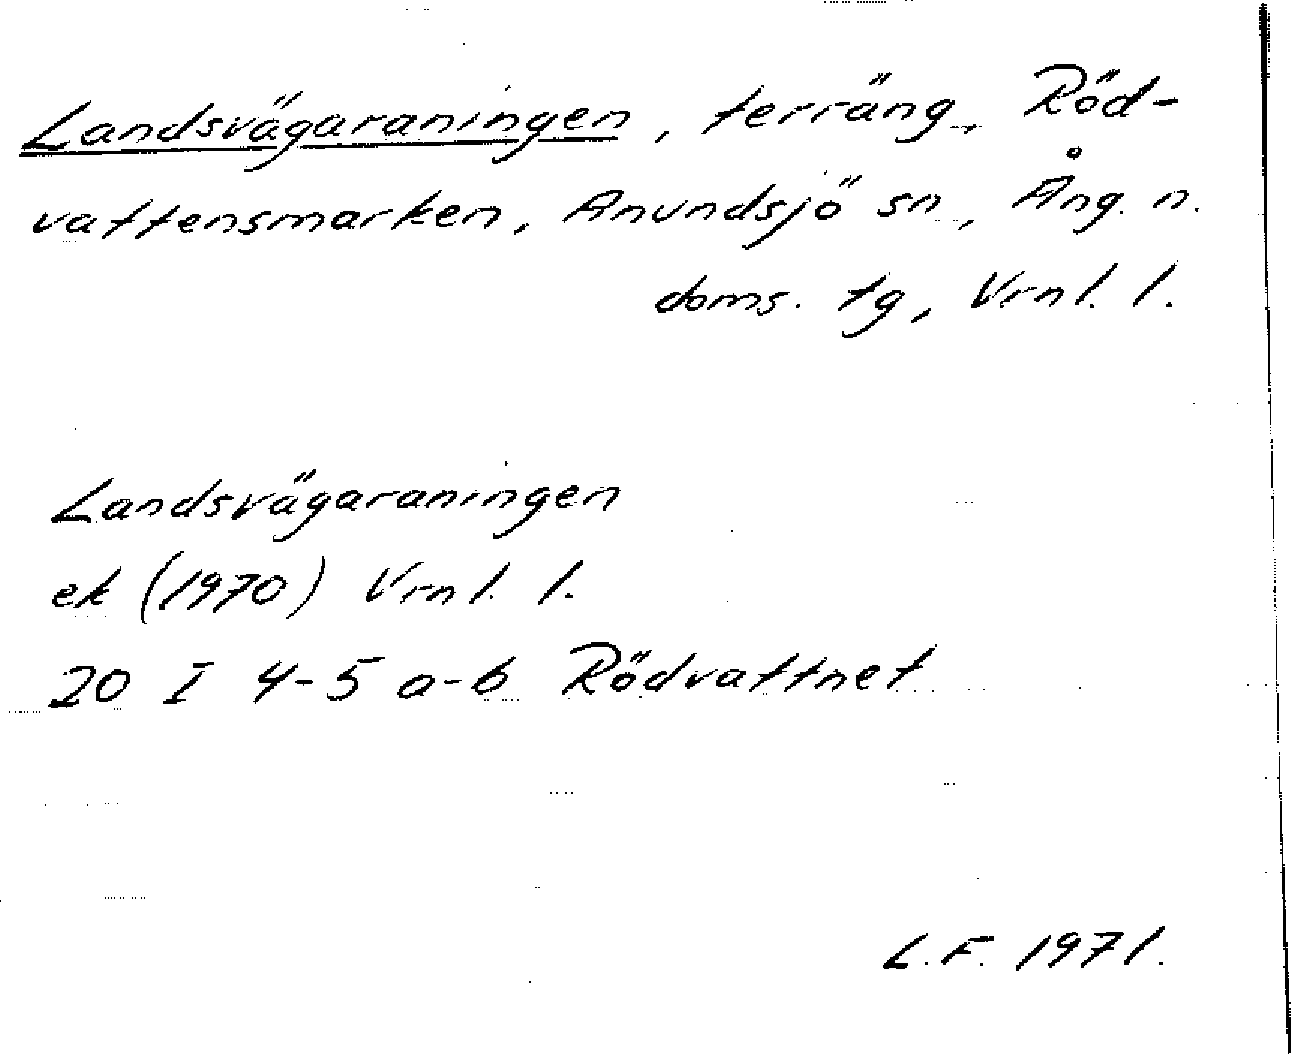 Landsvägaraningen, terräng, Röd-
vattensmarken, Anundsjö sn, Ång. n.
doms. tg, Vrnl. l.
Landsvägaraningen
ek (1970) Vrnl. l.
20 I 4-5 a-b Rödvattnet
L.F. 1971.